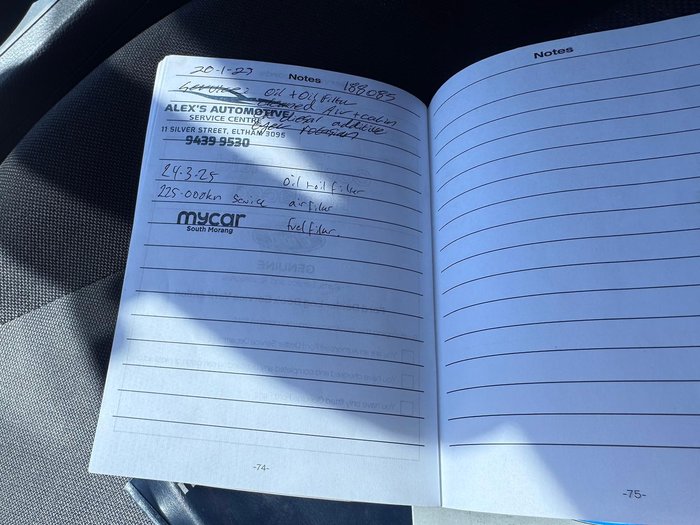 Notes
20-1-23
188085
Oil + Oil Filter
Air + cabin
ALEX'S AUTOMOTIVE
diesel additive
SERVICE CENTRE
11 SILVER STREET, ELTHAM 3095
9439 9530
24-3-25 oil + oil filter
225-000km Service air filter
mycar
South Morang
fuel filter.
GENUINE
-74-
Notes
-75-